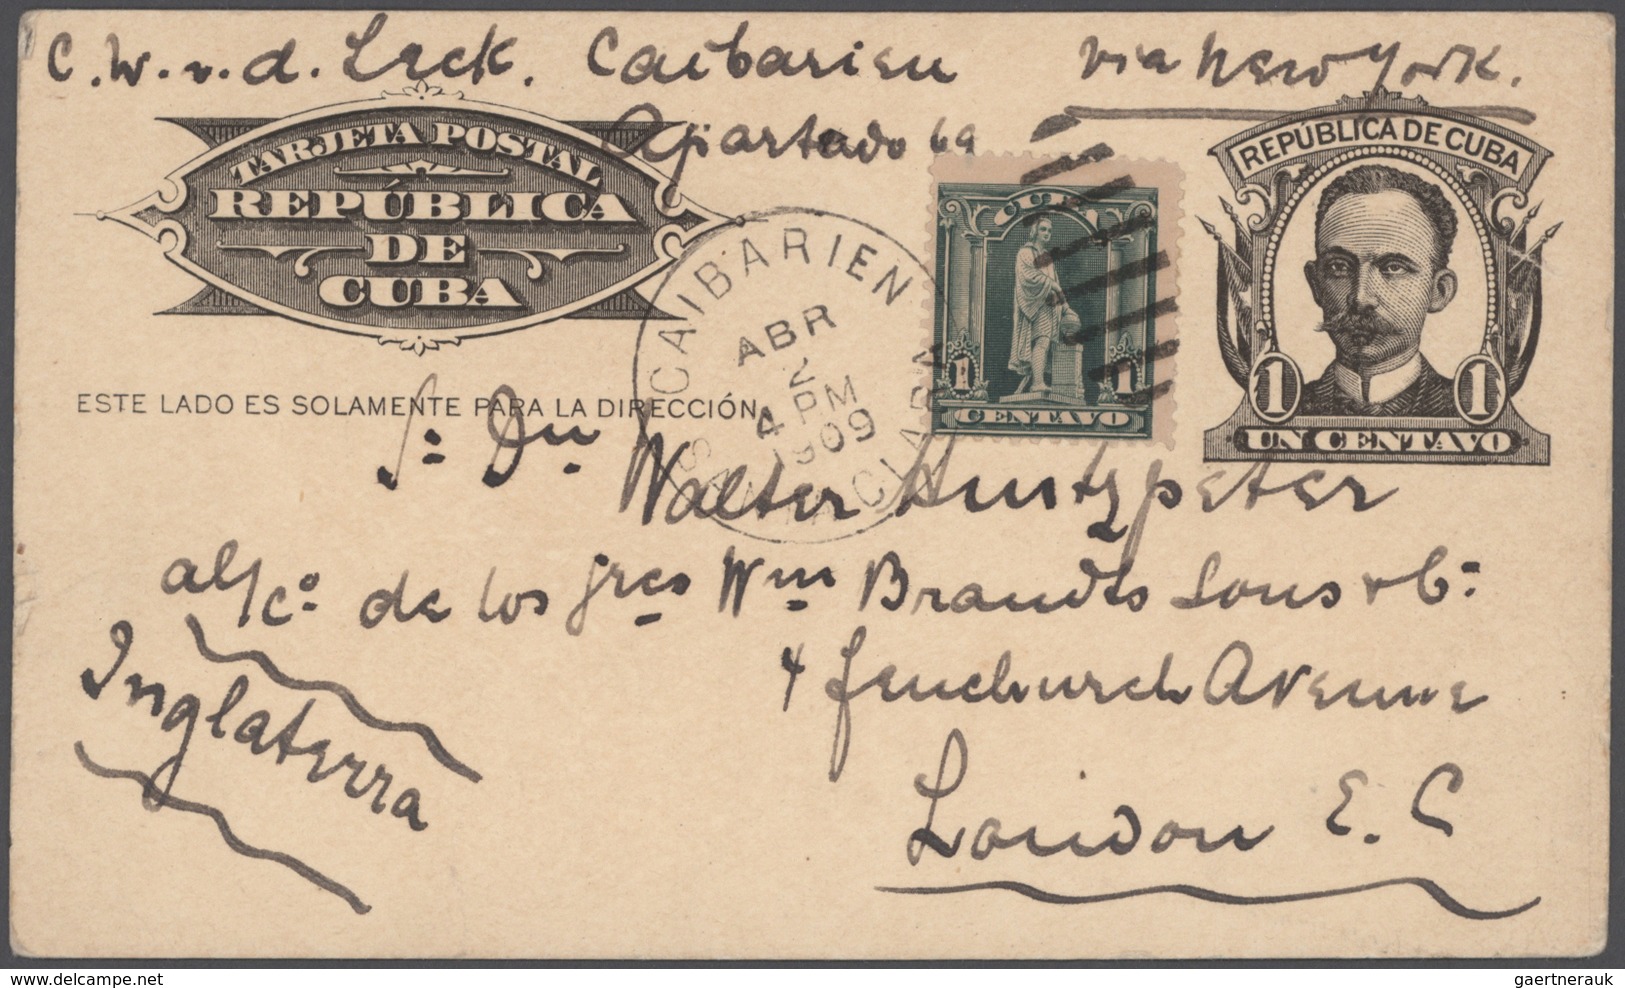 C. W. v. d. Leck. Caibarien via New York.
Apartado 69
TARJETA POSTAL
REPÚBLICA
DE
CUBA
REPÚBLICA DE CUBA
1 1
UN CENTAVO
CUBA
1 1
CENTAVO
CAIBARIEN
ABR
2
4 PM
1909
SANTA CLARA
ESTE LADO ES SOLAMENTE PARA LA DIRECCIÓN
Walter Huntzpeter
al c/o de los Sres Wm Brandts Sons & Co
4 Fenchurch Avenue
London E. C
Inglaterra
www.delcampe.net
gaertnerauk